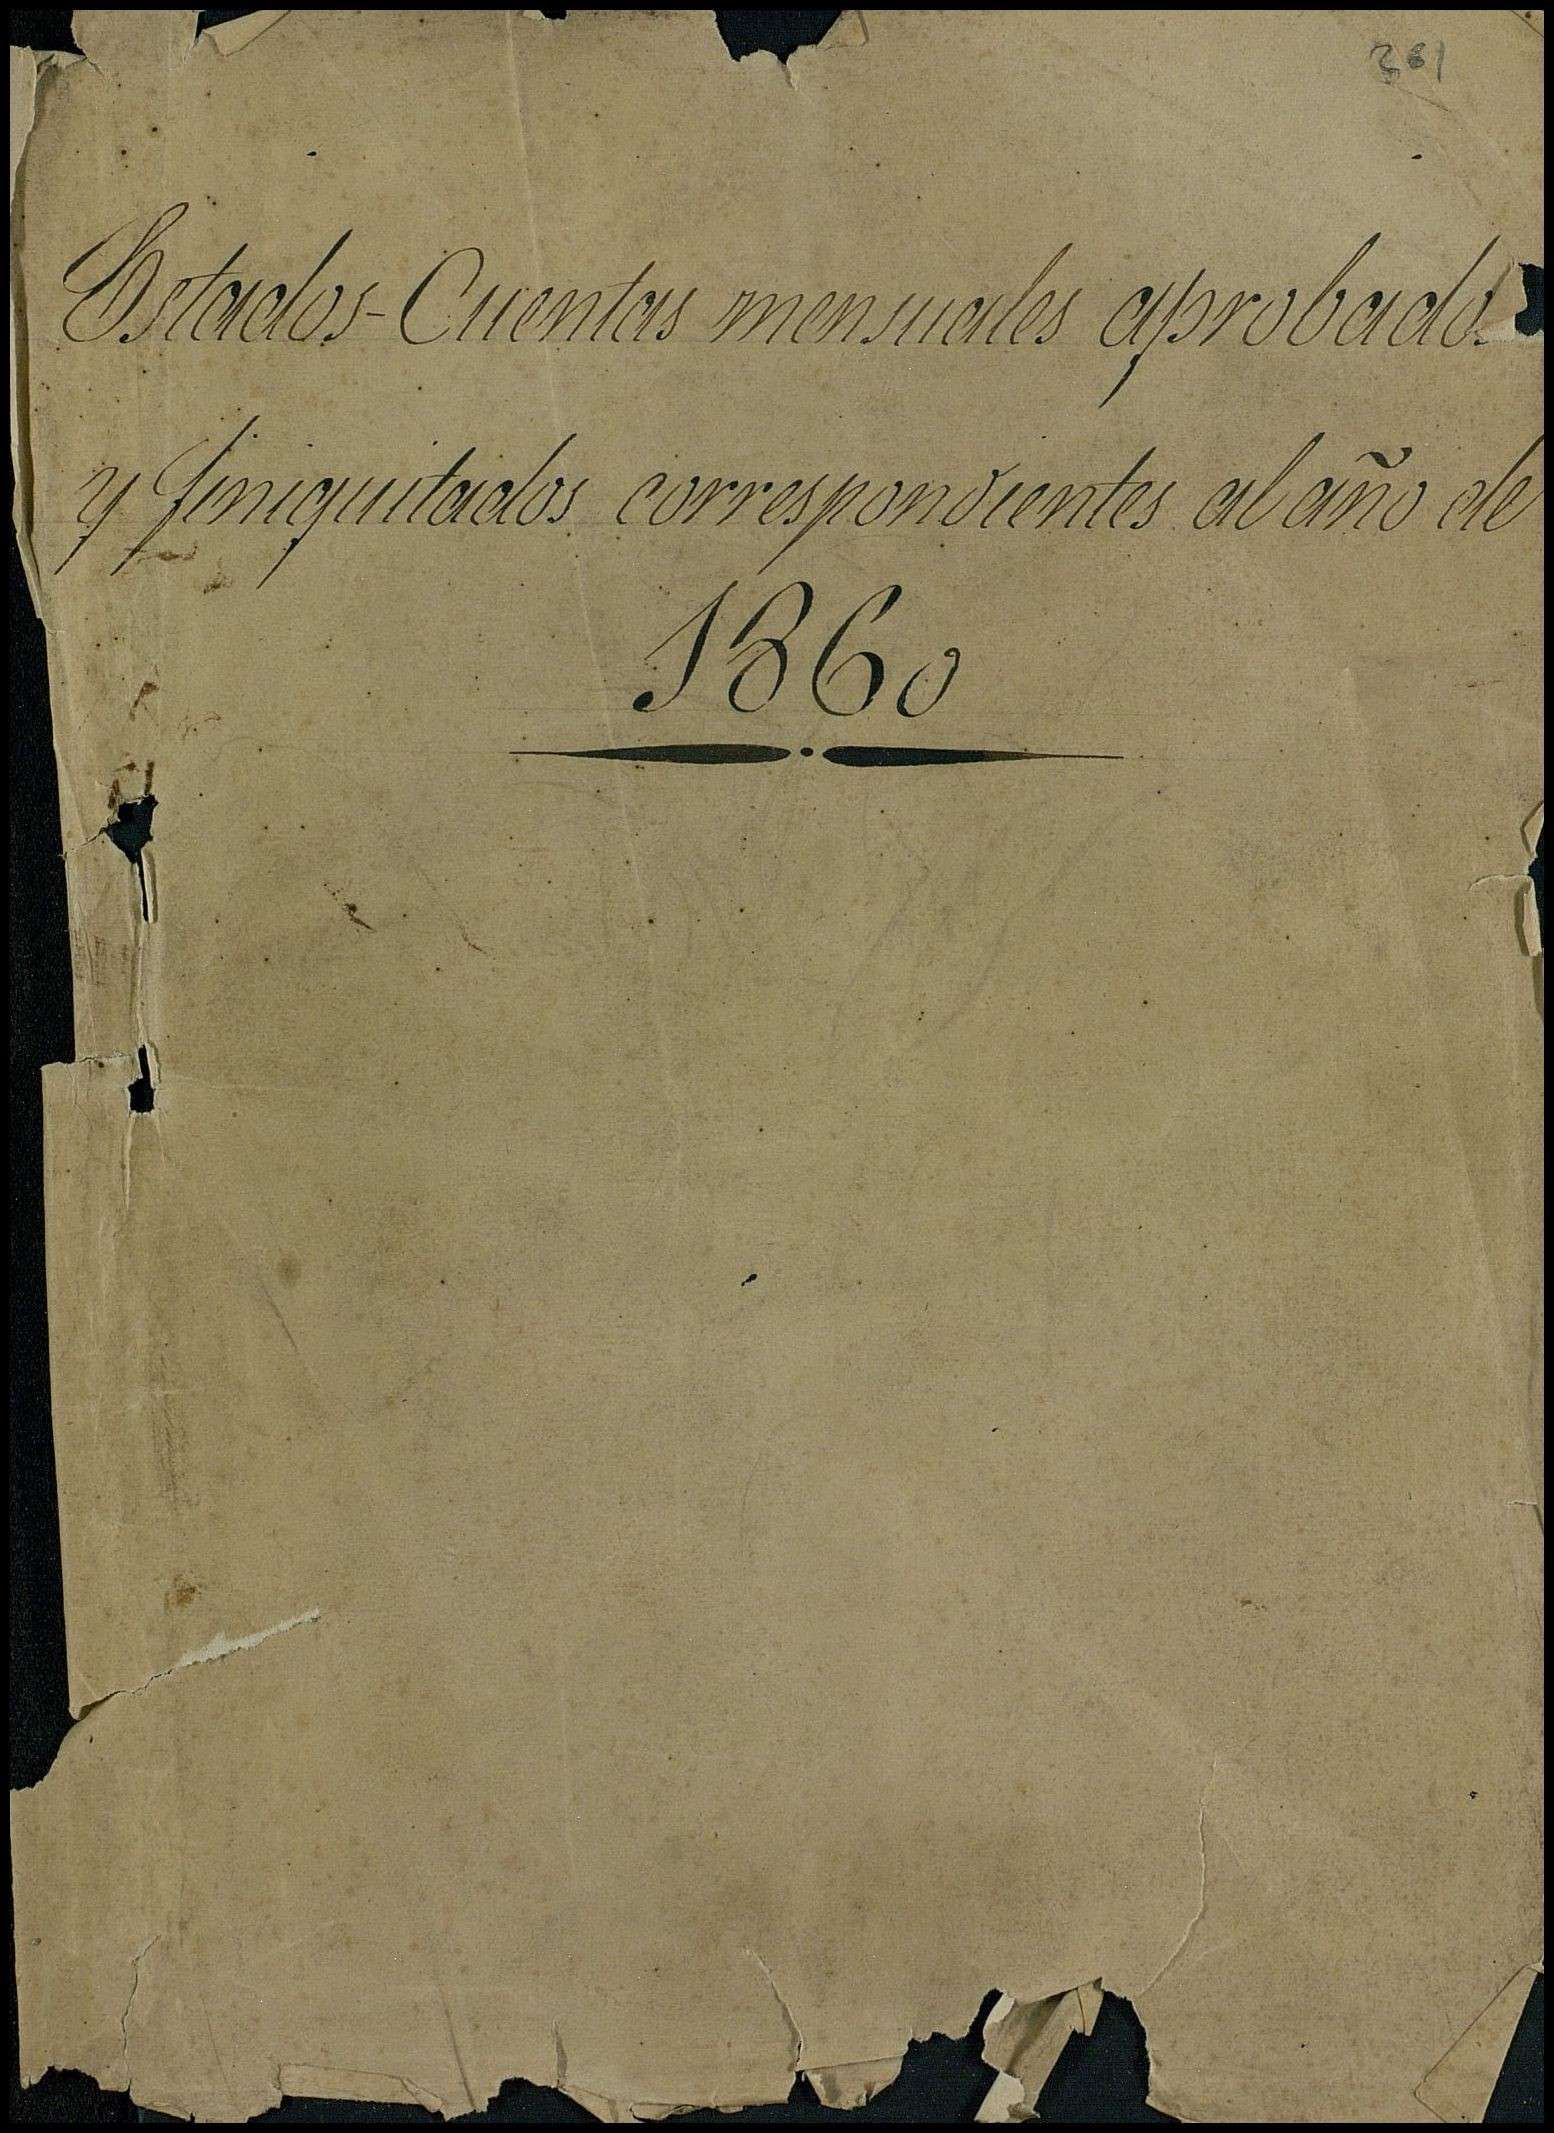 361
Estados-Cuentas mensuales aprobado
y finiquitados correspondientes al año de
1860